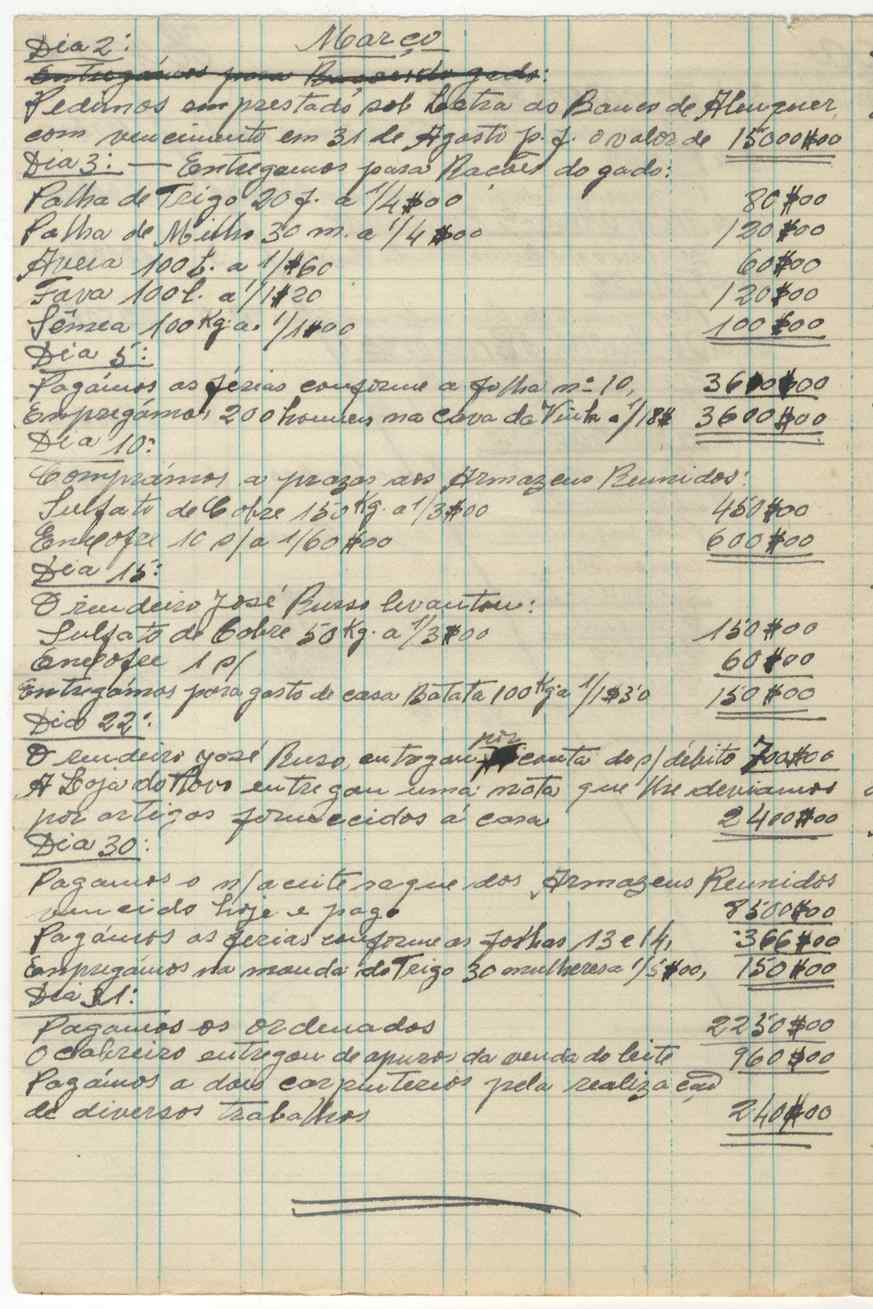 Março
Dia 2:
Entregámos para Rações do gado:
Pedimos emprestado sob Lectra ao Banco de Alenquer,
com vencimento em 31 de Agosto p. f. o valor de 15000$00
Dia 3: — Entregamos para Rações do gado:
Palha de Trigo 20 f. a 1/4$00 80$00
Palha de Milho 30 m. a 1/4$00 120$00
Aveia 100 L. a 1/$60 60$00
Fava 100 l. a 1/1$20 120$00
Sêmea 100 Kg a 1/1$00 100$00
Dia 5:
Pagámos as férias conforme a folha nº 10, 3600$00
Empregámos 200 homens na cava da Vinha a 1/18$ 3600$00
Dia 10:
Comprámos a prazo aos Armazens Reunidos:
Sulfato de Cobre 150 Kg. a 1/3$00 450$00
Enxofre 10 s/ a 1/60$00 600$00
Dia 15:
O rendeiro José Russo levantou:
Sulfato de Cobre 50 Kg. a 1/3$00 150$00
Enxofre 1 s/ 60$00
Entregámos para gasto de casa Batata 100 Kg a 1/1$50 150$00
Dia 22:
O rendeiro José Russo, entregou por conta do s/ débito 700$00
A Loja do Povo entregou uma nota que lhe deviamos
por artigos fornecidos á casa 2400$00
Dia 30:
Pagamos o n/ aceite saque dos Armazens Reunidos
vencido hoje e pago 8500$00
Pagámos as férias conforme as folhas 13 e 14, 366$00
Empregámos na monda do Trigo 30 mulheres a 1/5$00, 150$00
Dia 31:
Pagamos os ordenados 2250$00
O cabreiro entregou de apuros da venda do leite 960$00
Pagámos a dois carpinteiros pela realização
de diversos trabalhos 240$00